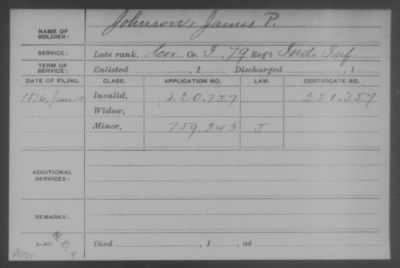 NAME OF SOLDIER: Johnson, James P.
SERVICE: Late rank, Cor Co. I, 79 Reg't Ind. Inf
TERM OF SERVICE: Enlisted , 1 Discharged , 1
DATE OF FILING. CLASS. APPLICATION NO. LAW. CERTIFICATE NO.
1876, Jan 10 Invalid, 220.737 231.357
Widow,
Minor, 759.343 J
ADDITIONAL SERVICES:
REMARKS:
Died , 1 , at